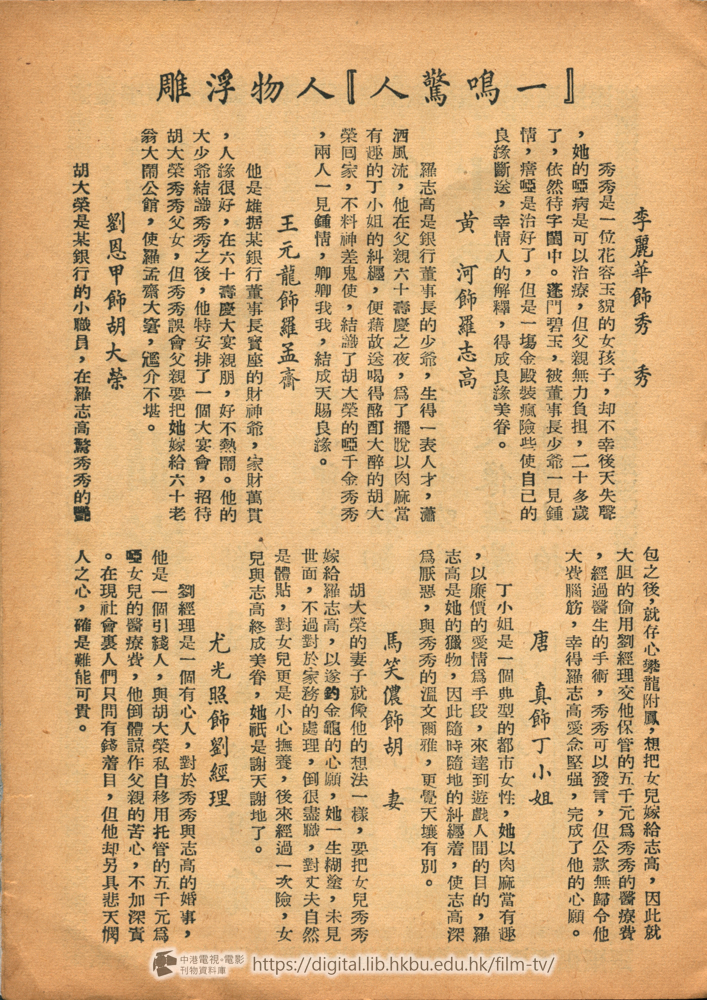 『一鳴驚人』人物浮雕
李麗華飾秀　秀
秀秀是一位花容玉貌的女孩子，却不幸後天失聲
，她的啞病是可以治療，但父親無力負担，二十多歲
了，依然待字閨中。蓬門碧玉，被董事長少爺一見鍾
情，瘖啞是治好了，但是一塲金殿裝瘋險些使自己的
良緣斷送，幸情人的解釋，得成良緣美眷。
黃　河飾羅志高
羅志高是銀行董事長的少爺，生得一表人才，瀟
洒風流，他在父親六十壽慶之夜，爲了擺脫以肉麻當
有趣的丁小姐的糾纒，便藉故送喝得酩酊大醉的胡大
榮囘家，不料神差鬼使，結識了胡大榮的啞千金秀秀
，兩人一見鍾情，卿卿我我，結成天賜良緣。
王元龍飾羅孟齋
他是雄据某銀行董事長寶座的財神爺，家財萬貫
，人緣很好，在六十壽慶大宴親朋，好不熱鬧。他的
大少爺結識秀秀之後，他特安排了一個大宴會，招待
胡大榮秀秀父女，但秀秀誤會父親要把她嫁給六十老
翁大鬧公館，使羅孟齋大窘，尷介不堪。
劉恩甲飾胡大榮
胡大榮是某銀行的小職員，在羅志高驚秀秀的艷
包之後，就存心攀龍附鳳，想把女兒嫁給志高，因此就
大胆的偷用劉經理交他保管的五千元爲秀秀的醫療費
，經過醫生的手術，秀秀可以發言，但公款無歸令他
大費腦筋，幸得羅志高愛念堅强，完成了他的心願。
唐　真飾丁小姐
丁小姐是一個典型的都市女性，她以肉麻當有趣
，以廉價的愛情爲手段，來達到遊戲人間的目的，羅
志高是她的獵物，因此隨時隨地的糾纒着，使志高深
爲厭惡，與秀秀的溫文爾雅，更覺天壤有別。
馬笑儂飾胡　妻
胡大榮的妻子就像他的想法一樣，要把女兒秀秀
嫁給羅志高，以遂釣金龜的心願，她一生糊塗，未見
世面，不過對於家務的處理，倒很盡職，對丈夫自然
是體貼，對女兒更是小心撫養，後來經過一次險，女
兒與志高終成美眷，她祇是謝天謝地了。
尤光照飾劉經理
劉經理是一個有心人，對於秀秀與志高的婚事，
他是一個引綫人，與胡大榮私自移用托管的五千元爲
啞女兒的醫療費，他倒體諒作父親的苦心，不加深責
。在現社會裏人們只問有錢着目，但他却另具悲天憫
人之心，確是難能可貴。
中港電視·電影
刊物資料庫
https://digital.lib.hkbu.edu.hk/film-tv/